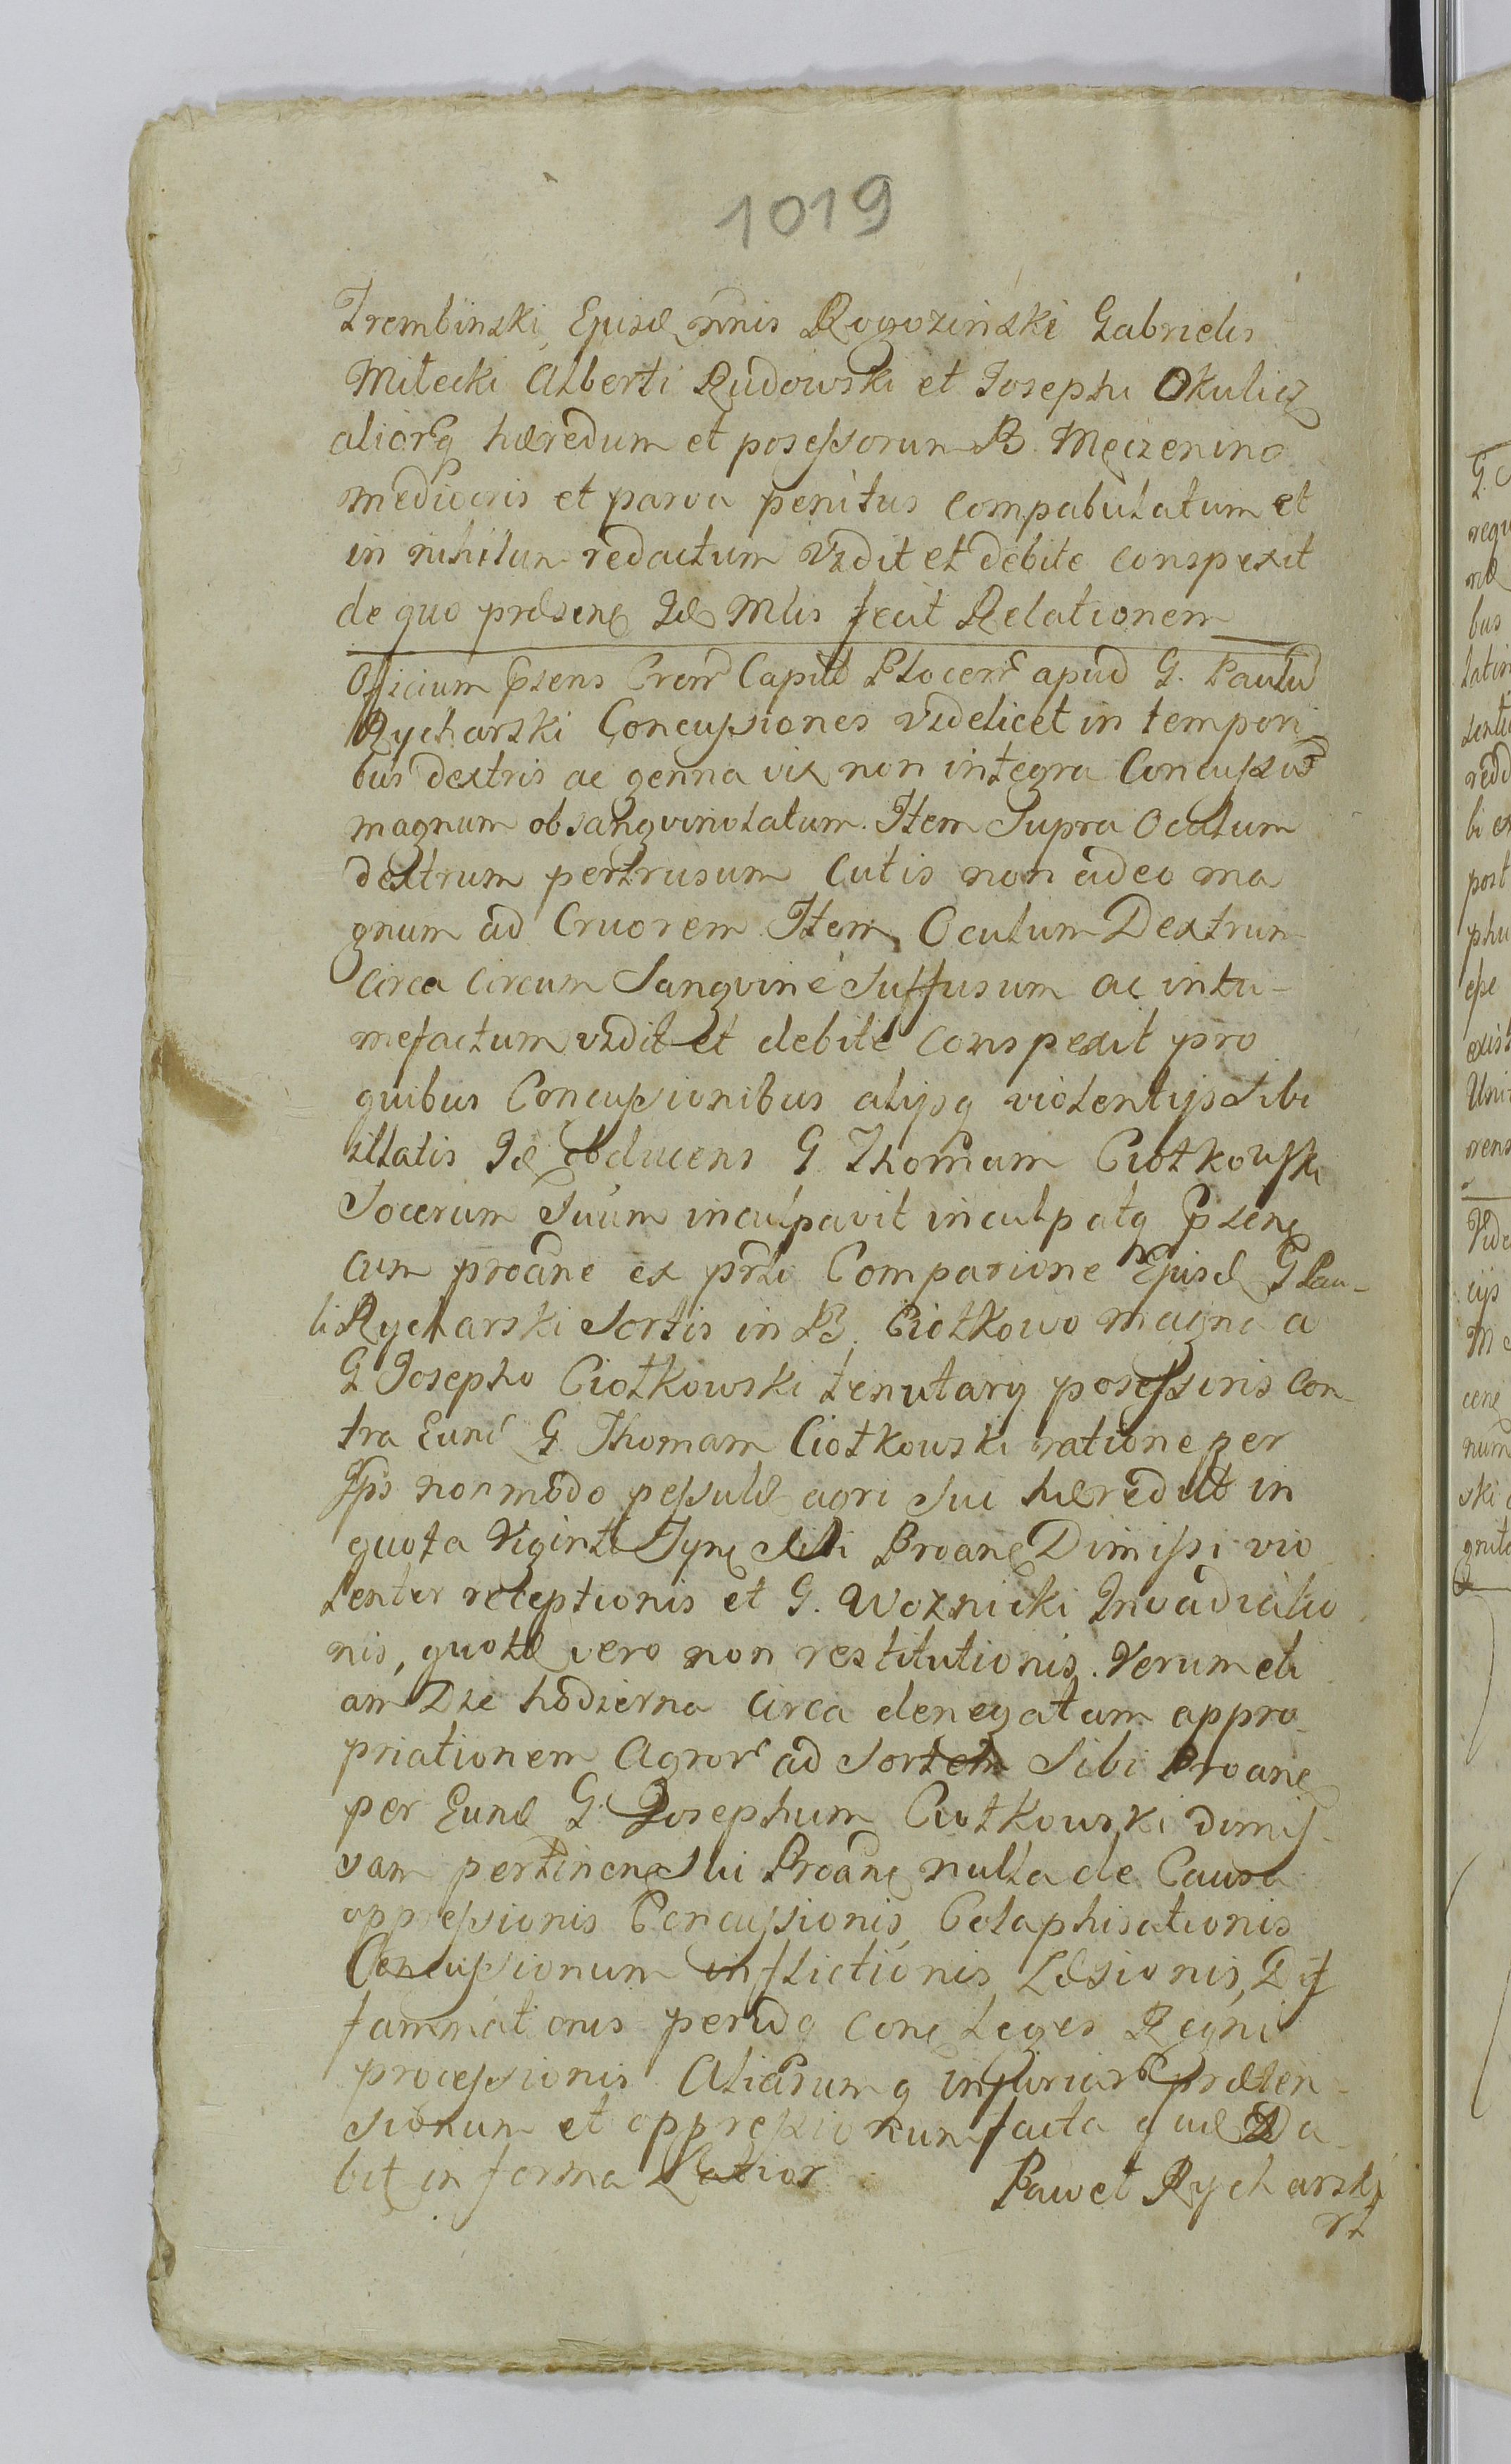 1019
Trembinski, Ejusd nnis Rogozinski Gabrielis
Miłecki Alberti Rudowski et Josephi Okulicz
aliorq hæredum et posessorum B. Męczenino
mediocris et parva penitus compabulatum et
in nihilum redactum vidit et debite conspexit
de quo præsens Id Mlis fecit Relationem
Officium psens Crem Capitl Plocen apud G. Paulu
Rycharski Concussiones videlicet in tempori
bus dextris ac genna vix non integra Concussu
magnum obsangvinolatum. Item Supra Oculum
dextrum pertrusum Cutis non adeo ma
gnum ad Cruorem Item Oculum Dextrum
circa circum Sangvine Suffusum ac intu-
mefactum vidit et debite conspexit pro
quibus Concussionibus alijsq violentijs Sibi
illatis Id obducens G. Thomam Ciołkowski
Socerum Suum inculpavit inculpatq psens
cum proane ex Comparione Ejusd G Pau-
li Rycharski Sortis in B. Ciołkowo magna a
G Josepho Ciołkowski tenutarij posessoris Con-
tra Eund G. Thomam Ciołkowski ratione per
Ips non modo agri sui hæredit in
quota Viginti Sibi Proane Dimissi vio
lenter receptionis et G. Woznicki Invadiatio
nis, quotæ vero non restitutionis. Verum eti
am Die hodierna circa denegatam appro-
priationem Agror ad Sortem Sibi Proane
per Eund G. Josephum Ciołkowski dimis-
sam pertinen Sui Proane nulla de Causa
oppressionis Concussionis, Colaphisationis
Concussionum inflictionis, Læsionis, Dif
fammationis cone Leges Regni
processionis Aliarumq injuriar præten-
sionum et oppressionum facta quæ Da-
bit in forma Latior Paweł Rycharski